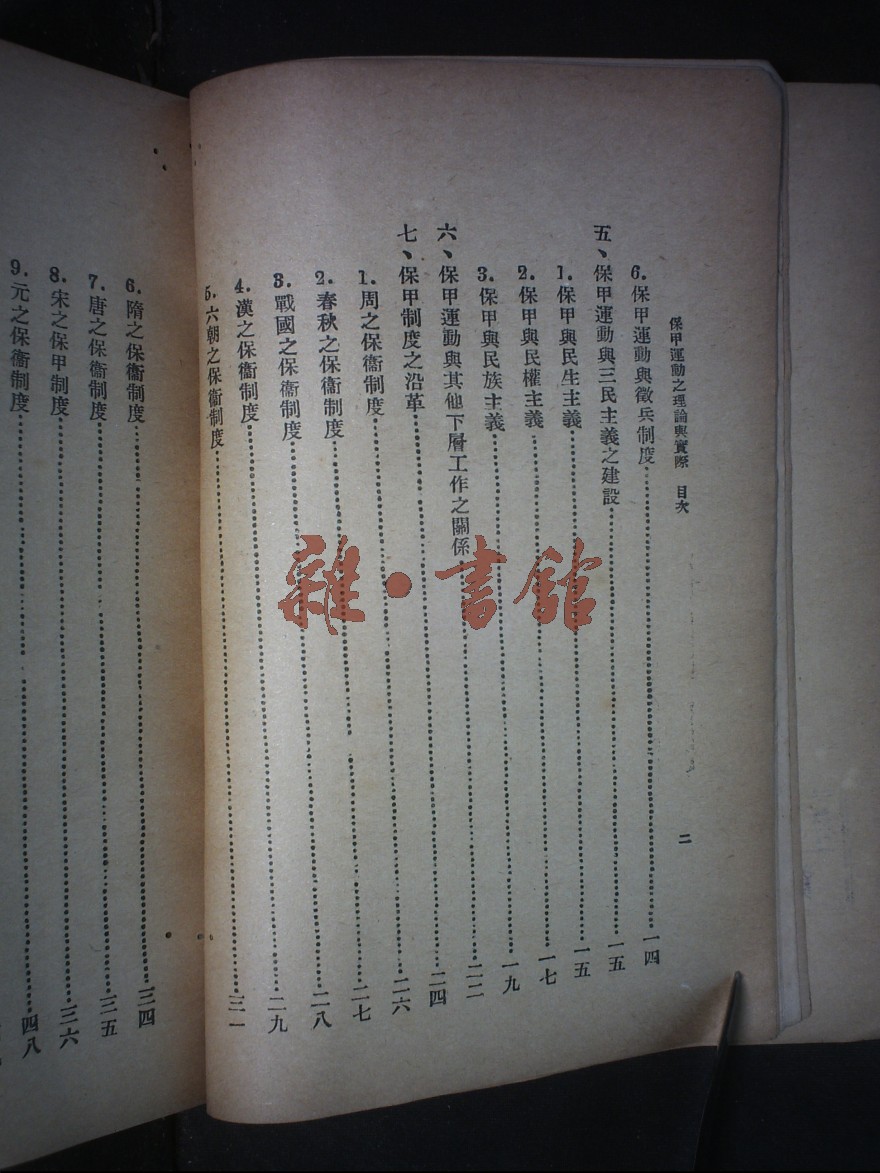 保甲運動之理論與實際 目次 二
6.保甲運動與徵兵制度……一四
五、保甲運動與三民主義之建設……一五
1.保甲與民生主義……一五
2.保甲與民權主義……一七
3.保甲與民族主義……一九
六、保甲運動與其他下層工作之關係……二二
七、保甲制度之沿革……二四
1.周之保衞制度……二六
2.春秋之保衞制度……二七
3.戰國之保衞制度……二八
4.漢之保衞制度……二九
5.六朝之保衞制度……三一
6.隋之保衞制度……三四
7.唐之保衞制度……三五
8.宋之保甲制度……三六
9.元之保衞制度……四八
雜·書館